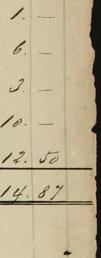 1. —
6. —
3. —
10. —
12. 50
14. 87